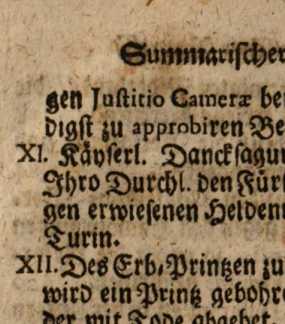 Summarischer
gen Justitio Cameræ be
digst zu approbiren Be
XI. Käyserl. Dancksagun
Ihro Durchl. den Fürs
gen erwiesenen Heldenm
Turin.
XII. Des Erb-Printzen zu
wird ein Printz gebohre
der mit Tode abgehet.